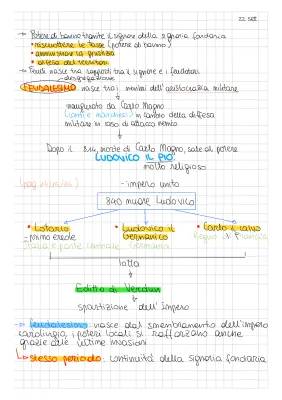 22 set
→ Potere di banno tramite il signore della signoria fondiaria
• riscuotere le tasse (potere di banno)
• amministrare la giustizia
• difesa del territorio
→ Feudi nasce tra rapporti tra il signore e i feudatari
disgregazione
FEUDALESIMO nasce tra i membri dell'aristocrazia militare
inaugurato da Carlo Magno
(conti e marchesi) in cambio della difesa
militare in caso di attacco nemico
Dopo il 814, morte di Carlo Magno, sale al potere
LUDOVICO IL PIO:
molto religioso
- impero unito
840 muore Ludovico
• Lotario
= primo erede
• Ludovico il
Germanico
Germania
• Carlo il calvo
Regno di Francia
lotta
Editto di Verdun
spartizione dell'Impero
→ feudalesimo: nasce dal smembramento dell'impero
carolingio, i poteri locali si rafforzano anche
grazie alle ultime invasioni
↳ stesso periodo: continuità della signoria fondiaria